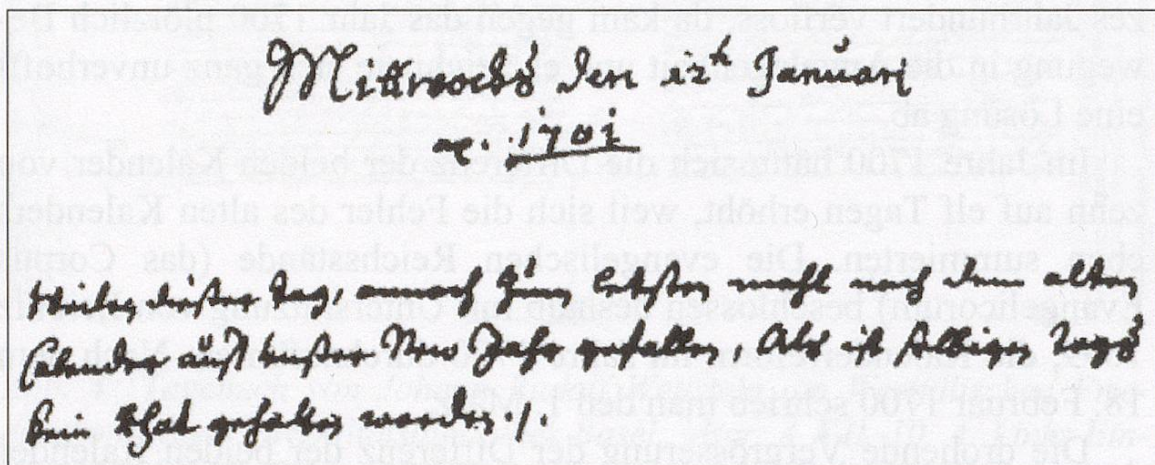 Mittwochs den 12th Januarii
a. 1701
Weilen dießer Tag, annoch zum letsten mahl nach dem alten
Calender auff unßer New Jahr gefallen, Als ist selbigen Tags
kein Rhat gehalten worden ./.